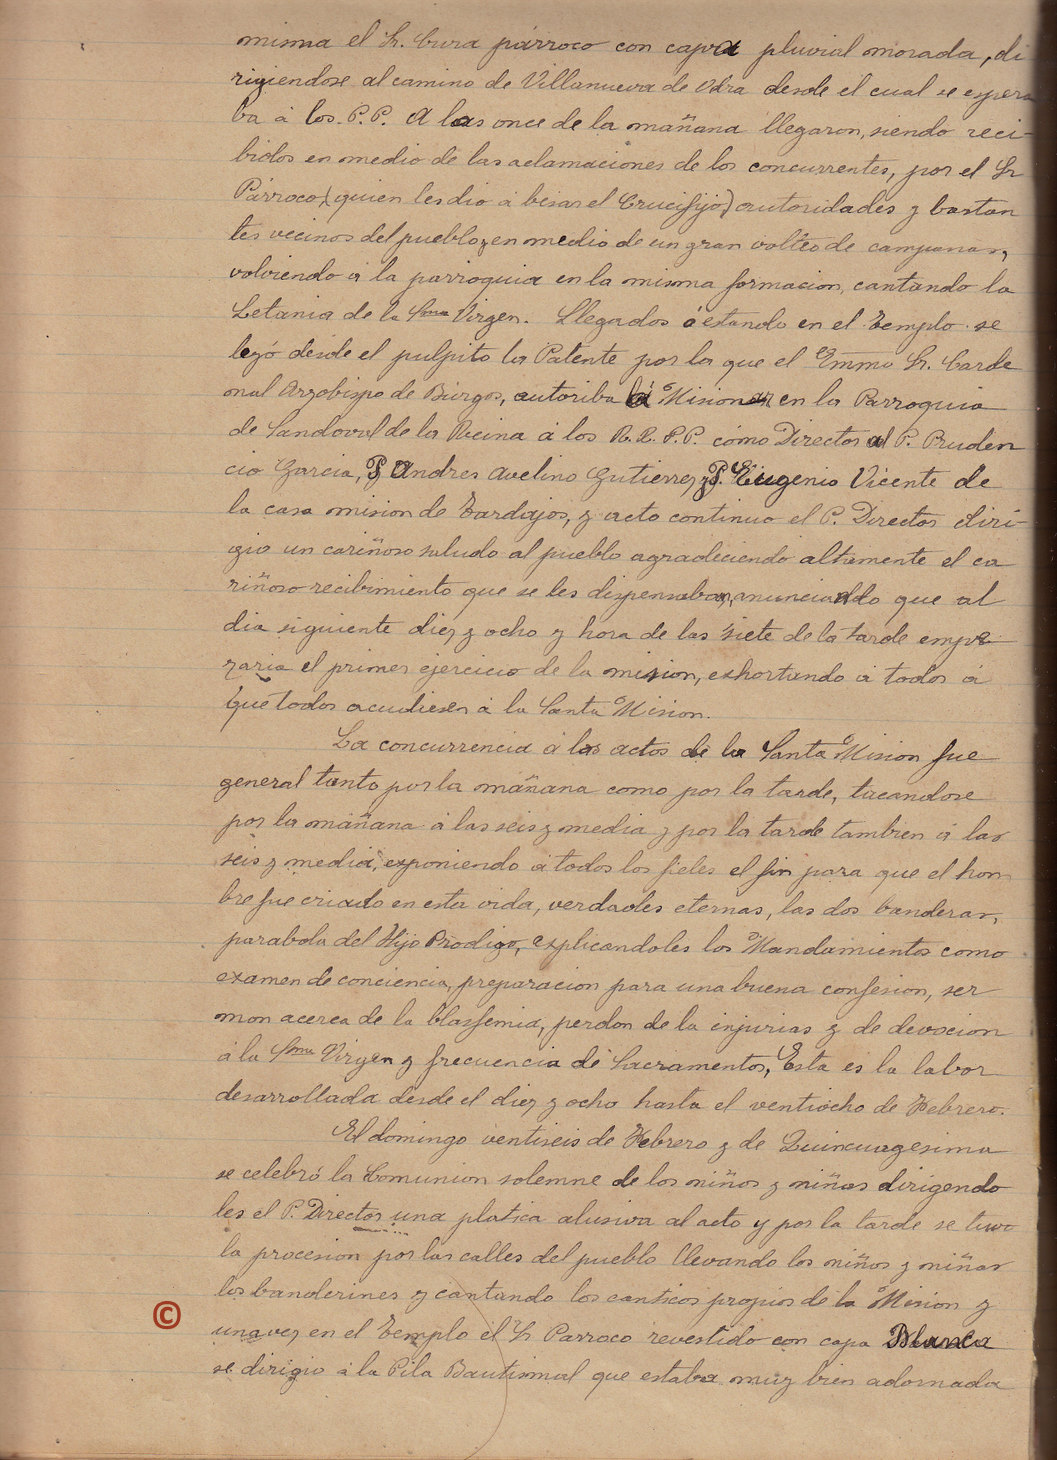 misma el Sr. Cura párroco con capa pluvial morada, di
rigiendose al camino de Villanueva de Odra desde el cual se espera
ba á los P.P. A las once de la mañana llegaron, siendo reci-
bidos en medio de las aclamaciones de los concurrentes, por el Sr
Párroco, (quien les dio á besar el Crucifijo) autoridades y bastan
tes vecinos del pueblo y en medio de un gran volteo de campanas,
volviendo á la parroquia en la misma formacion, cantando la
Letania de la Sma Virgen. Llegados ó estando en el Templo se
leyó desde el pulpito la Patente por la que el Emmo Sr. Carde
nal Arzobispo de Búrgos, autoriba la Mision en la Parroquia
de Sandoval de la Reina á los R.R. P.P. cómo Director al P. Pruden
cio Garcia, P. Andres Avelino Gutierrez y P. Eugenio Vicente de
la casa mision de Tardajos, y acto continuo el P. Director diri-
gio un cariñoso saludo al pueblo agradeciendo altamente el ca
riñoso recibimiento que se les dispensaba, anunciando que al
dia siguiente diez y ocho y hora de las siete de la tarde empe
zaria el primer ejercicio de la mision, exhortando á todos á
que todos acudiesen á la Santa Mision.
La concurrencia á los actos de la Santa Mision fue
general tanto por la mañana como por la tarde, tocandose
por la mañana á las seis y media y por la tarde tambien á las
seis y media, exponiendo á todos los fieles el fin para que el hom
bre fue criado en esta vida, verdades eternas, las dos banderas,
parabola del Hijo Prodigo, explicandoles los Mandamientos como
examen de conciencia, preparacion para una buena confesion, ser
mon acerca de la blasfemia, perdon de la injurias y de devocion
á la Sma Virgen y frecuencia de Sacramentos, Esta es la labor
desarrollada desde el diez y ocho hasta el ventiocho de Febrero.
El domingo ventiseis de Febrero y de Quincuagesima
se celebró la Comunion solemne de los niños y niñas dirigendo
les el P. Director una platica alusiva al acto y por la tarde se tuvo
la procesion por las calles del pueblo llevando los niños y niñas
los banderines y cantando los canticos propios de la Mision y
una vez en el Templo el Sr Parroco revestido con capa Blanca
se dirigio á la Pila Bautismal que estaba muy bien adornada
©